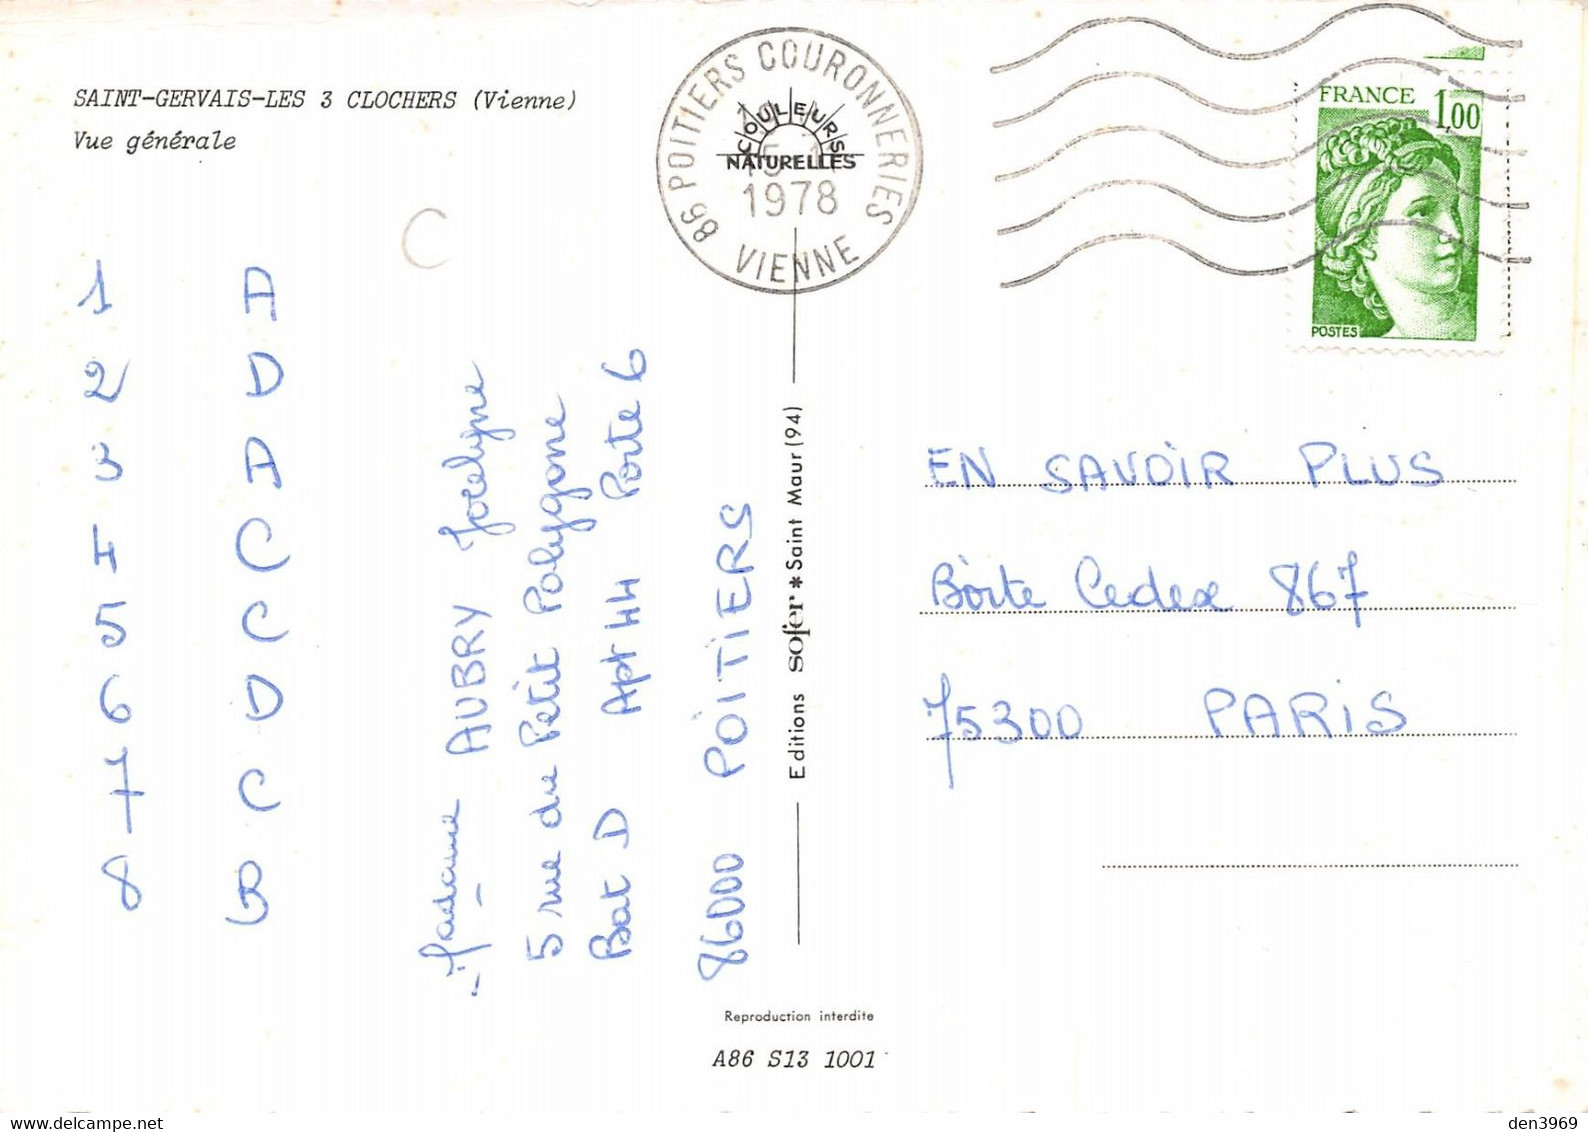 SAINT-GERVAIS-LES 3 CLOCHERS (Vienne)
Vue générale
86 POITIERS COURONNERIES
VIENNE
1978
COULEURS
NATURELLES
FRANCE 1,00
POSTES
1 A
2 D
3 A
4 C
5 C
6 D
7 C
8 B
Madame AUBRY Jocelyne
5 rue du Petit Polygone
Bat D Apt 44 Porte 6
86000 POITIERS
Editions sofer * Saint Maur (94)
EN SAVOIR PLUS
Boîte Cedex 867
75300 PARIS
Reproduction interdite
A86 S13 1001
den3969